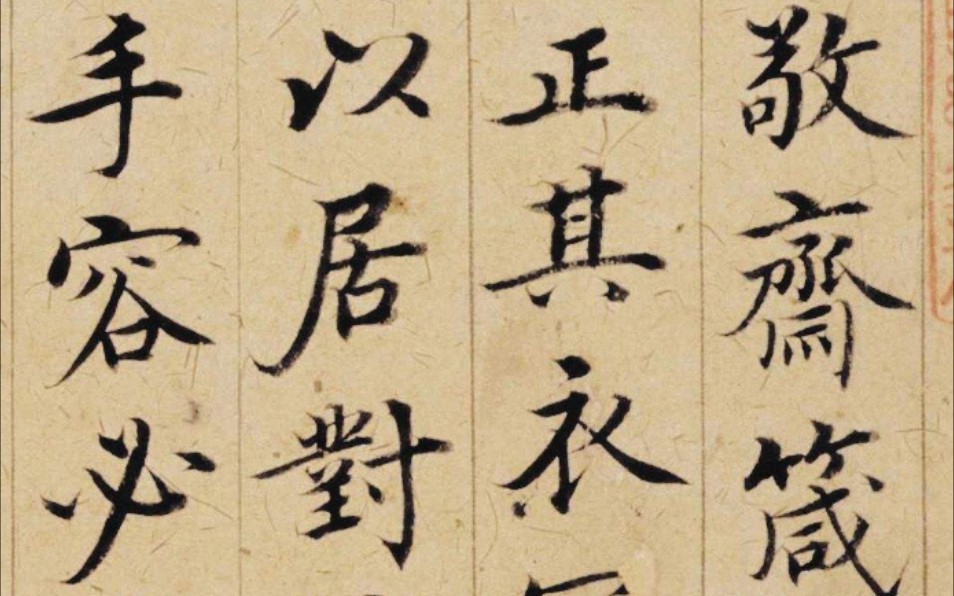 敬齋箴
正其衣
以居對
手容必